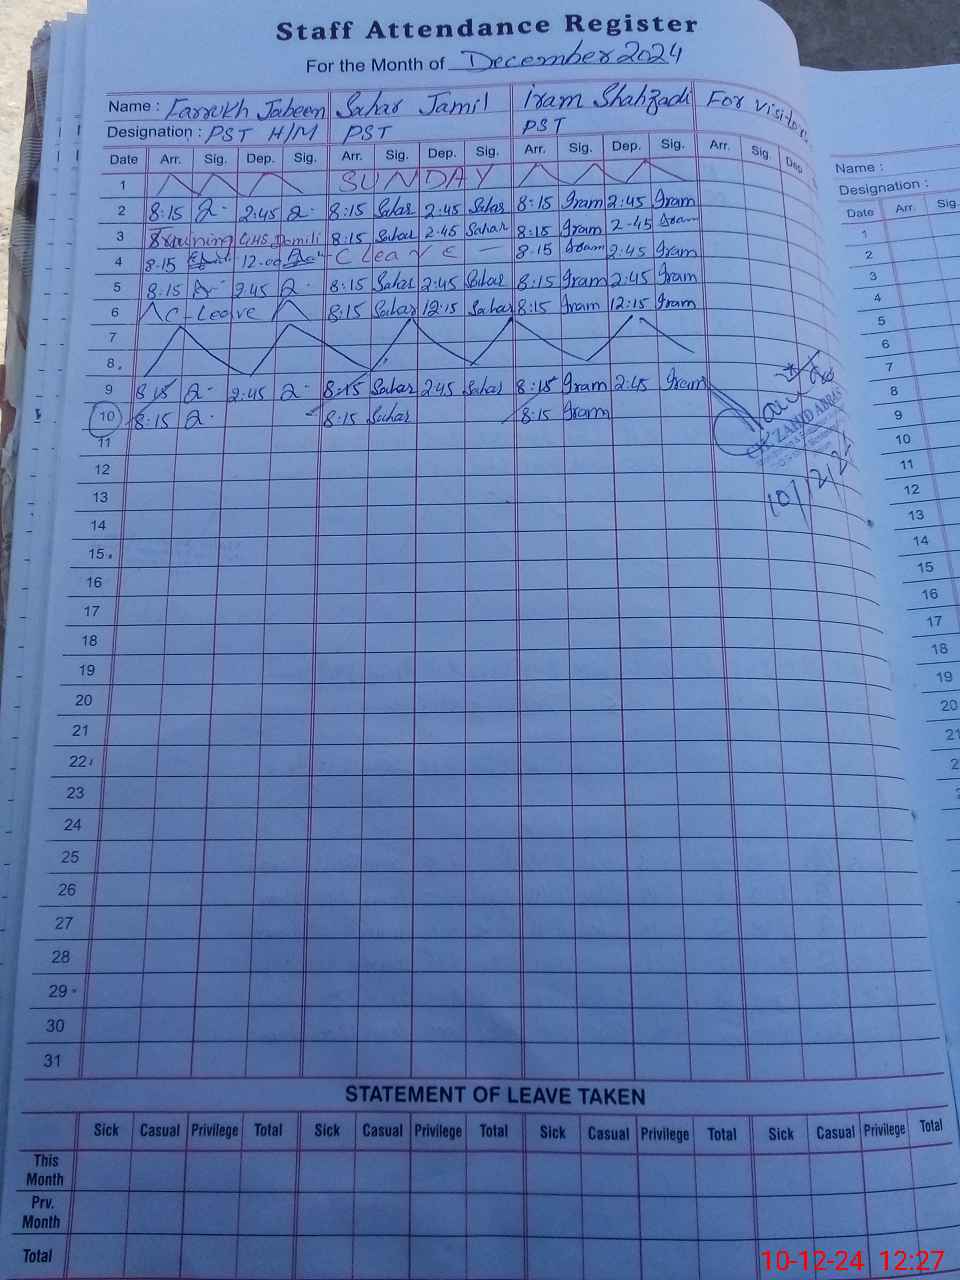 Staff Attendance Register
For the Month of December 2024
Name : Farrukh Jabeen Sahar Jamil Iram Shahzadi For Visitors
Designation : PST H/M PST PST
Date Arr. Sig. Dep. Sig. Arr. Sig. Dep. Sig. Arr. Sig. Dep. Sig. Arr. Sig. Dep.
1 SUNDAY
2 8:15 2:45 8:15 Sahar 2:45 Sahar 8:15 Iram 2:45 Iram
3 GHS 8:15 Sahar 2:45 Sahar 8:15 Iram 2-45 Iram
4 8-15 12.00 C Leave 8-15 Iram 2:45 Iram
5 8:15 2:45 8:15 Sahar 2:45 Sahar 8:15 Iram 2:45 Iram
6 C-Leave 8:15 Sahar 12:15 Sahar 8:15 Iram 12:15 Iram
7
8
9 8:15 2:45 8:15 Sahar 2:45 Sahar 8:15 Iram 2:45 Iram
10 8:15 8:15 Sahar 8:15 Iram
10/12/24
11
12
13
14
15
16
17
18
19
20
21
22
23
24
25
26
27
28
29
30
31
STATEMENT OF LEAVE TAKEN
Sick Casual Privilege Total Sick Casual Privilege Total Sick Casual Privilege Total Sick Casual Privilege Total
This Month
Prv. Month
Total
Name :
Designation :
Date Arr. Sig.
1
2
3
4
5
6
7
8
9
10
11
12
13
14
15
16
17
18
19
20
21
10-12-24 12:27